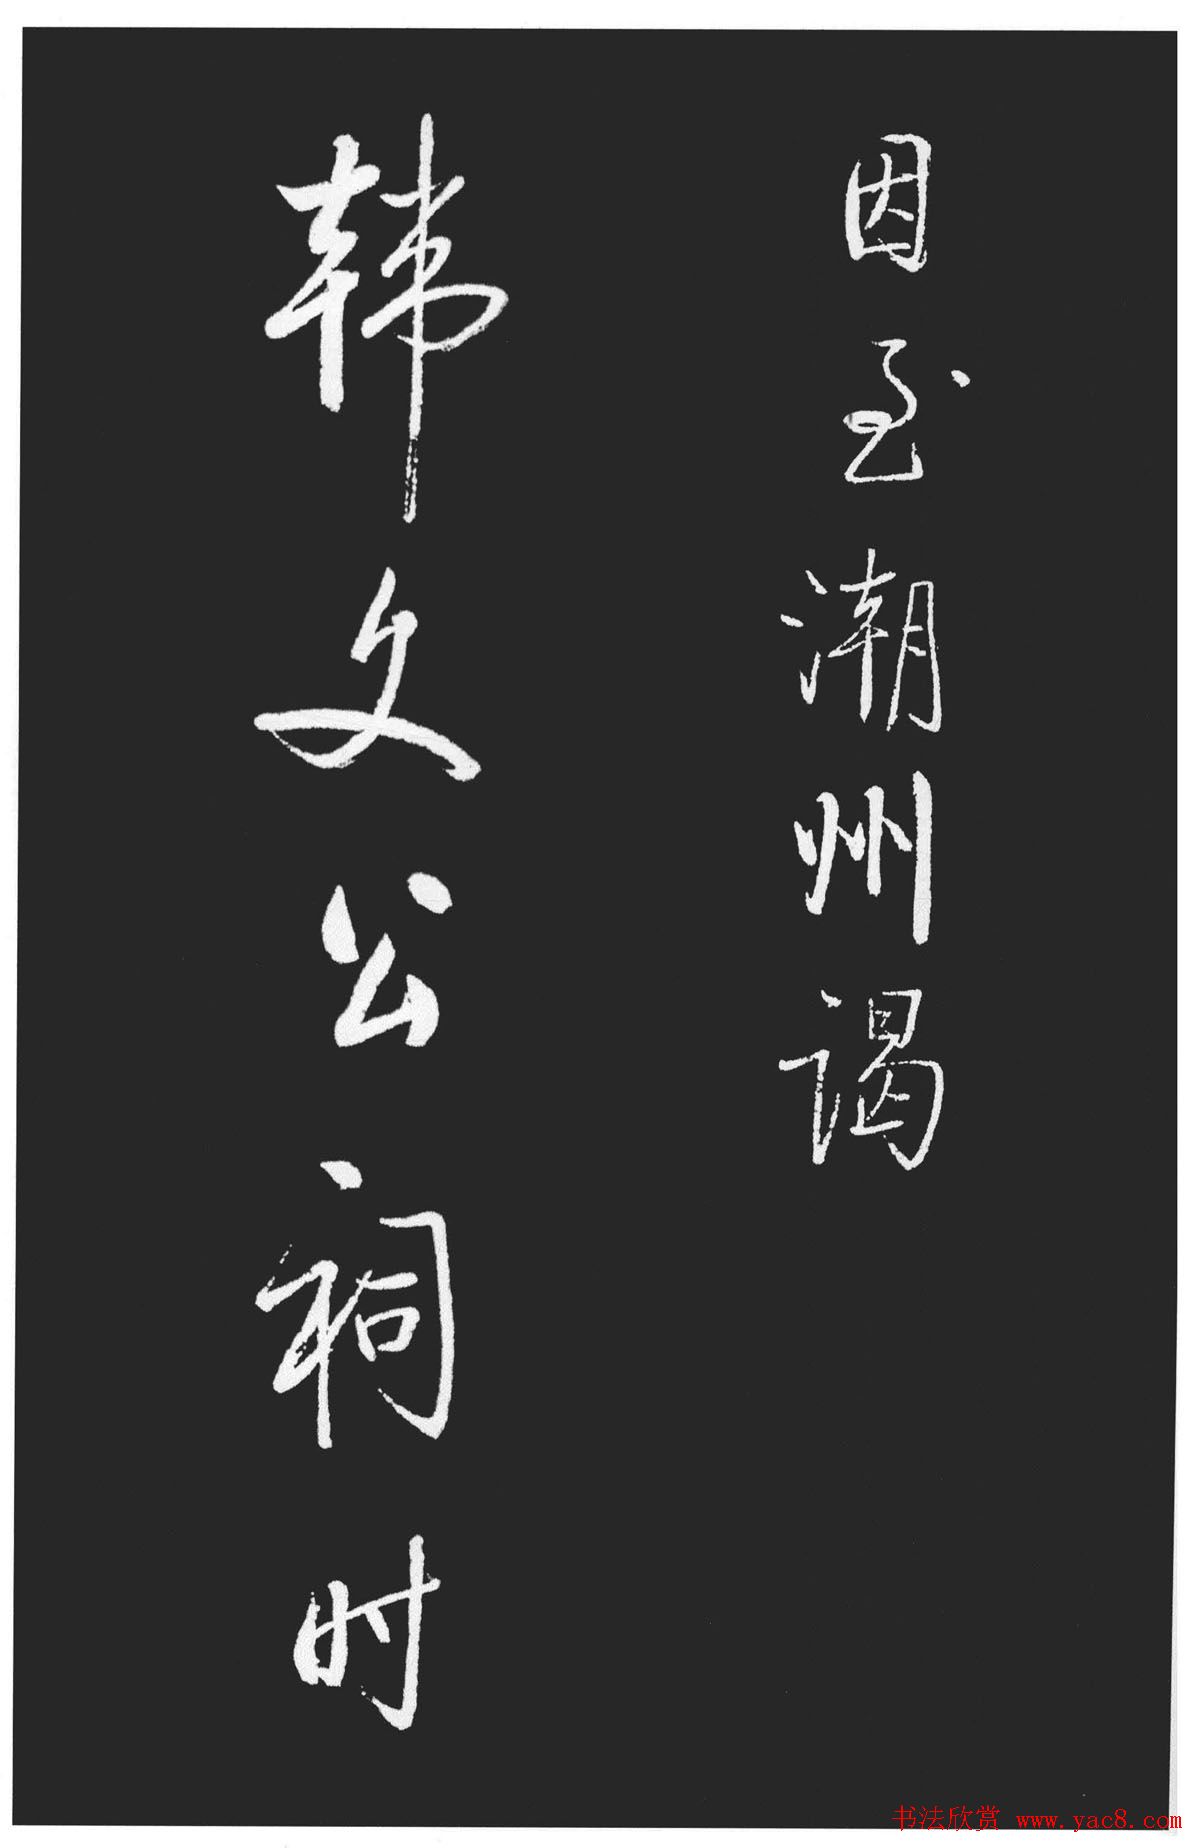 因至潮州谒
韩文公祠时
书法欣赏 www.yac8.com